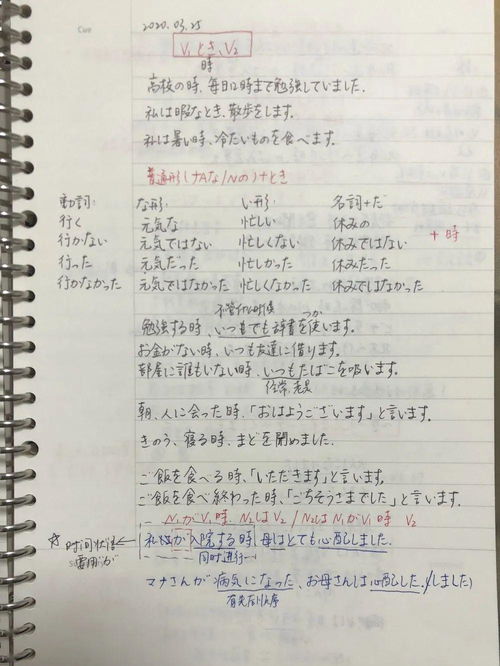 Cue
2020.03.25
V1とき、V2
時
高校の時、毎日12時まで勉強していました.
私は暇なとき、散歩をします。
私は暑い時、冷たいものを食べます。
普通形(ナAな/Nの)+とき
動詞: な形: い形: 名詞+だ
行く 元気な 忙しい 休みの
行かない 元気ではない 忙しくない 休みではない +時
行った 元気だった 忙しかった 休みだった
行かなかった 元気ではなかった 忙しくなかった 休みではなかった
不管什么时候 つか
勉強する時、いつもでも辞書を使います。
お金がない時、いつも友達に借ります。
部屋に誰もいない時、いつもたばこを吸います。
经常,老是
朝、人に会った時、「おはようございます」と言います。
きのう、寝る時、まどを開めました.
ご飯を食べる時、「いただきます」と言います。
ご飯を食べ終わった時、「ごちそうさまでした」と言います。
N1がV1時 N2はV2/N2はN1がV1時 V2
☆ 时间状语 ← 私が入院する時 母はとても心配しました.
专用が 同时进行
マナさんが病気になった、お母さんは心配した.(しました)
有先后顺序